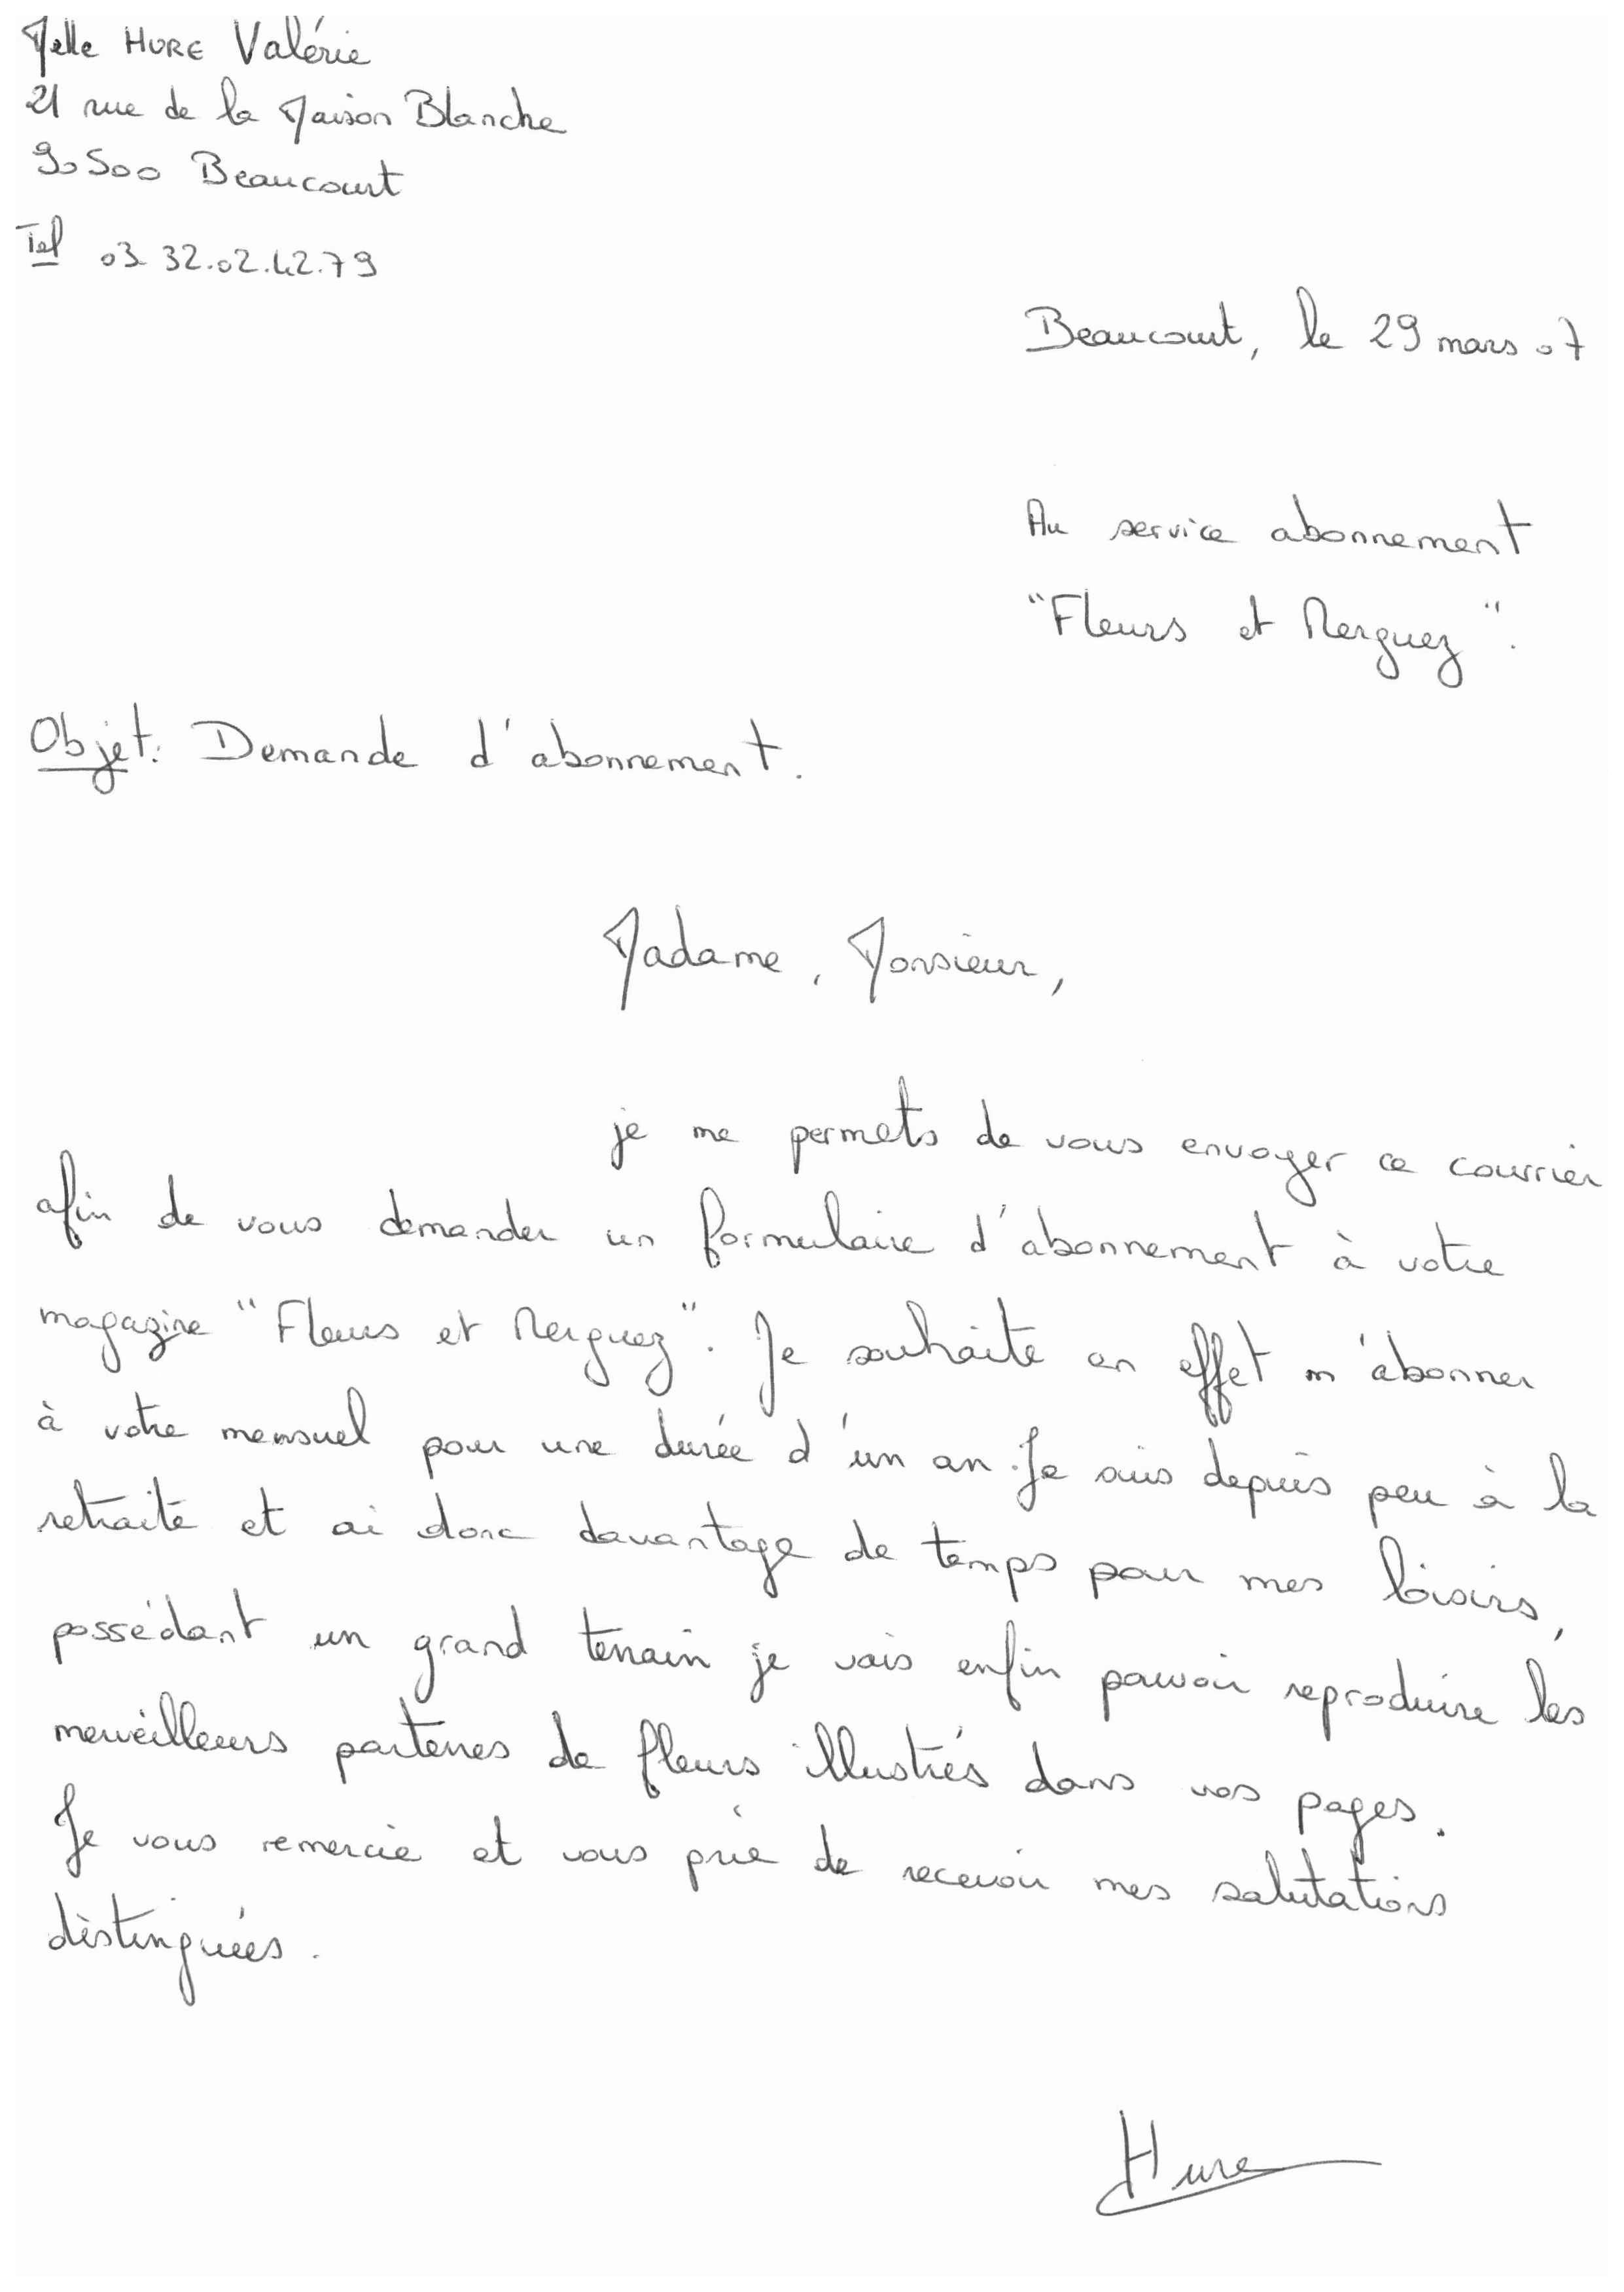 Melle HURE Valérie
21 rue de la Maison Blanche
90500 Beaucourt
Tel 03 32.02.42.79
Beaucourt, le 29 mars 07
Au service abonnement
"Fleurs et Merguez".
Objet: Demande d'abonnement.
Madame, Monsieur,
je me permets de vous envoyer ce courrier
afin de vous demander un formulaire d'abonnement à votre
magazine "Fleurs et Merguez". Je souhaite en effet m'abonner
à votre mensuel pour une durée d'un an. Je suis depuis peu à la
retraite et ai donc davantage de temps pour mes loisirs,
possédant un grand terrain je vais enfin pouvoir reproduire les
merveilleurs parterres de fleurs illustrés dans vos pages.
Je vous remercie et vous prie de recevoir mes salutations
distinguées.
Hure